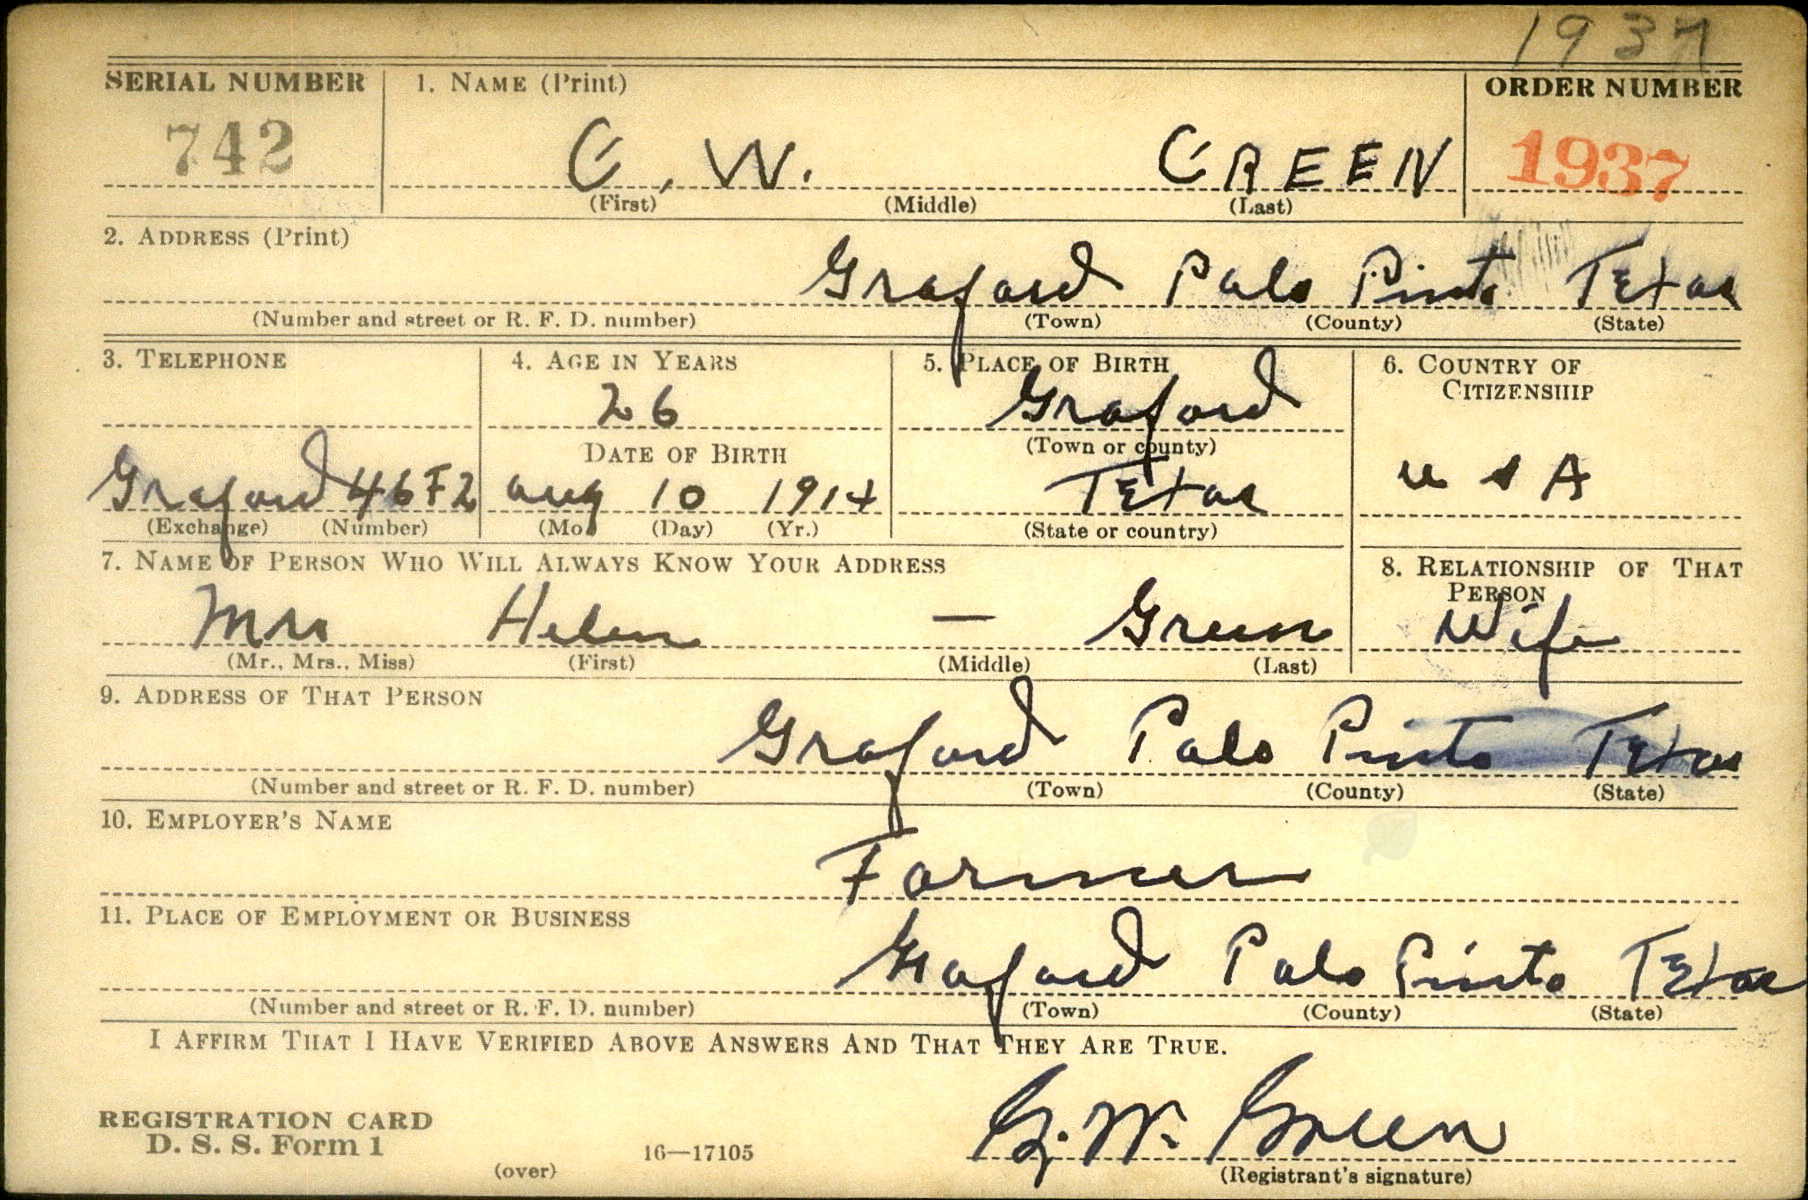 1937
SERIAL NUMBER 1. NAME (Print) ORDER NUMBER
742 G. W. GREEN 1937
(First) (Middle) (Last)
2. ADDRESS (Print)
Graford Palo Pinto Texas
(Number and street or R. F. D. number) (Town) (County) (State)
3. TELEPHONE 4. AGE IN YEARS 5. PLACE OF BIRTH 6. COUNTRY OF CITIZENSHIP
26 Graford
DATE OF BIRTH (Town or county)
Graford 46F2 Aug 10 1914 Texas U S A
(Exchange) (Number) (Mo.) (Day) (Yr.) (State or country)
7. NAME OF PERSON WHO WILL ALWAYS KNOW YOUR ADDRESS 8. RELATIONSHIP OF THAT PERSON
Mrs Helen — Green Wife
(Mr., Mrs., Miss) (First) (Middle) (Last)
9. ADDRESS OF THAT PERSON
Graford Palo Pinto Texas
(Number and street or R. F. D. number) (Town) (County) (State)
10. EMPLOYER'S NAME
Farmer
11. PLACE OF EMPLOYMENT OR BUSINESS
Graford Palo Pinto Texas
(Number and street or R. F. D. number) (Town) (County) (State)
I AFFIRM THAT I HAVE VERIFIED ABOVE ANSWERS AND THAT THEY ARE TRUE.
REGISTRATION CARD
D. S. S. Form 1 16—17105 G. W. Green
(over) (Registrant's signature)